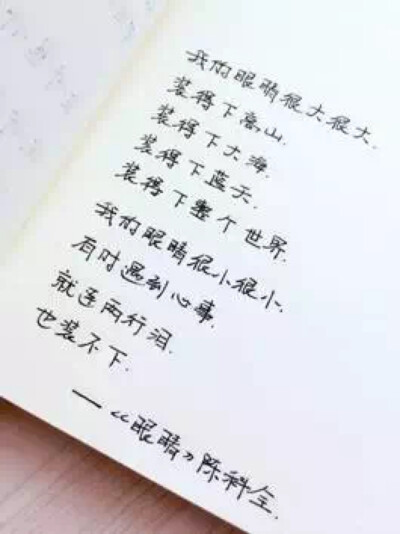 我的眼睛很大很大.
装得下高山.
装得下大海.
装得下蓝天.
装得下整个世界.
我的眼睛很小很小.
有时遇到心事.
就连两行泪.
也装不下.
—《眼睛》陈科全.